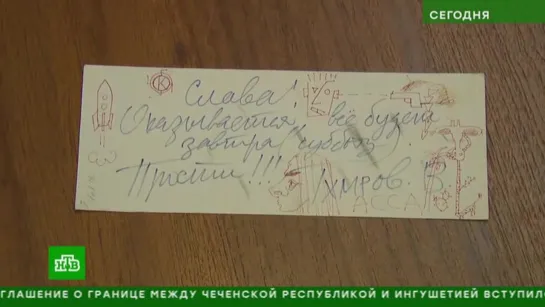 СЕГОДНЯ
К
Слава!
Оказывается, всё будет
завтра, субботу
Прости!!! Тихиров В.
АССА
НТВ
ГЛАШЕНИЕ О ГРАНИЦЕ МЕЖДУ ЧЕЧЕНСКОЙ РЕСПУБЛИКОЙ И ИНГУШЕТИЕЙ ВСТУПИЛ